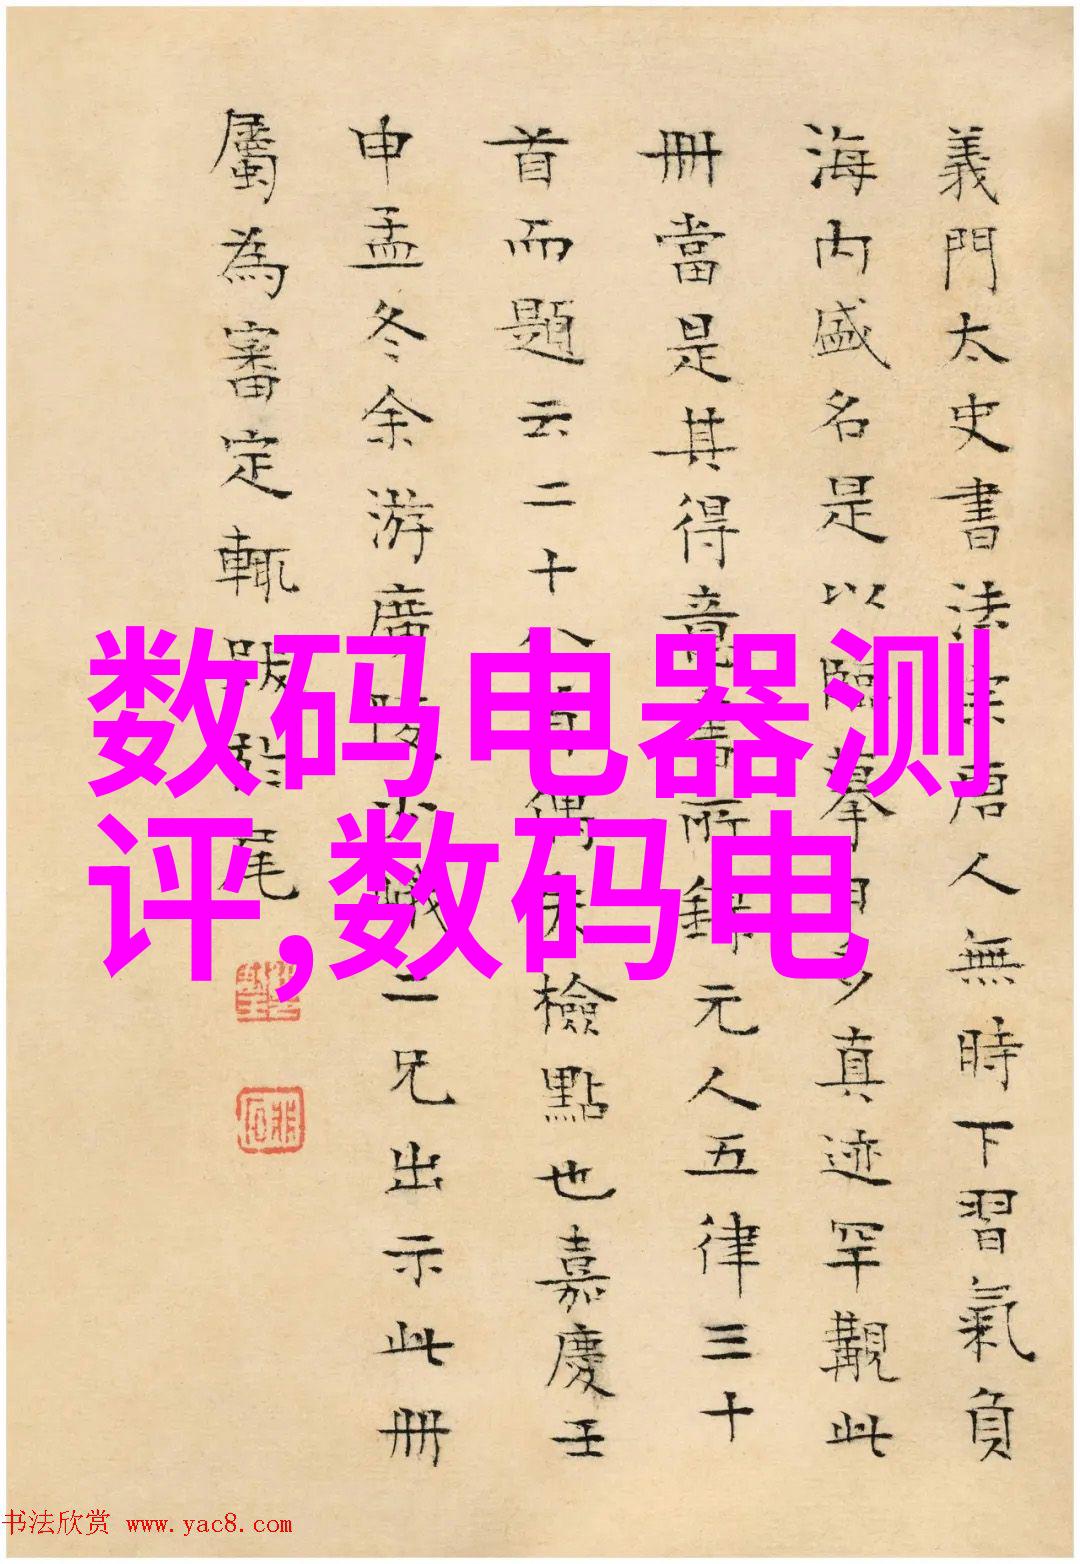 義門太史書法宗唐人無時下習氣負
海内盛名是以臨摹甚多真迹罕覯此
冊當是其得意書所錄元人五律三十
首而題云二十八首偶失檢點也嘉慶壬
申孟冬余游廣陵少峨二兄出示此冊
屬為審定輒跋於尾
数码电器测
评,数码电
书法欣赏 www.yac8.com